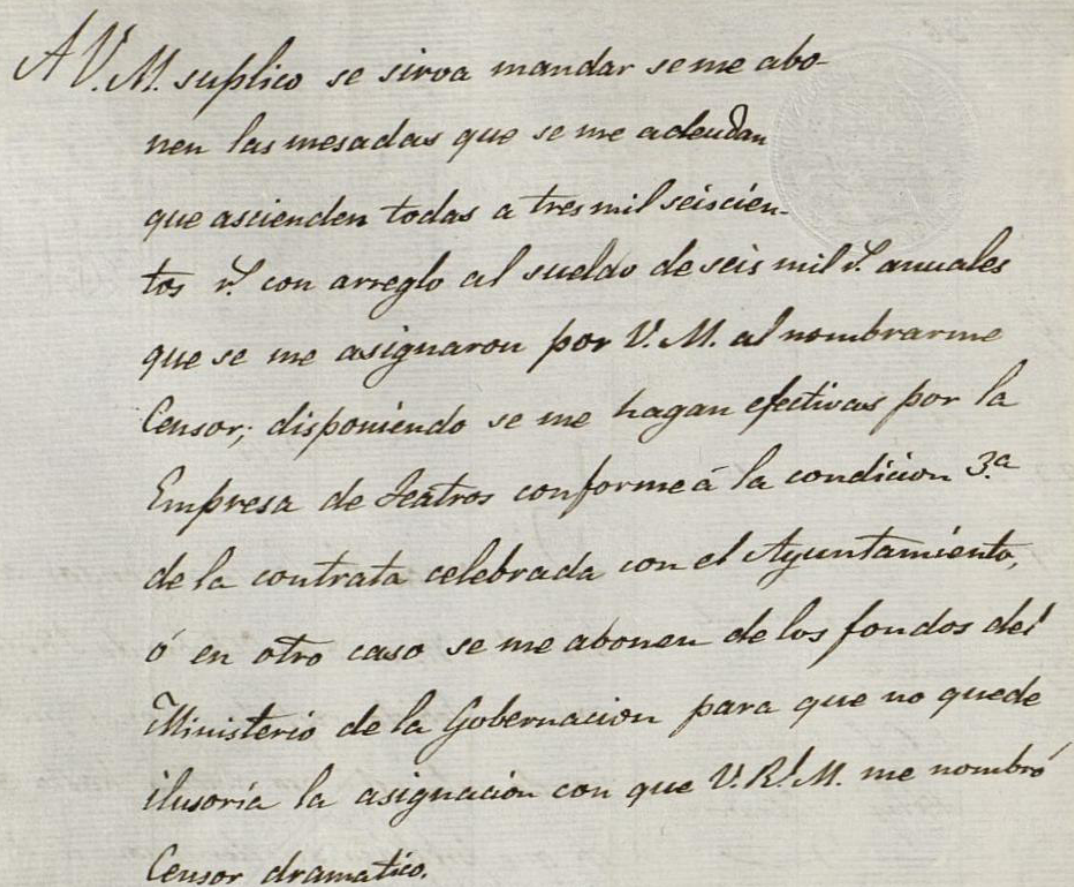 A V. M. suplico se sirva mandar se me abo-
nen las mesadas que se me adeudan
que ascienden todas a tres mil seiscien-
tos rs. con arreglo al sueldo de seis mil rs. anuales
que se me asignaron por V. M. al nombrarme
Censor; disponiendo se me hagan efectivas por la
Empresa de Teatros conforme á la condicion 3.a
de la contrata celebrada con el Ayuntamiento,
ó en otro caso se me abonen de los fondos del
Ministerio de la Gobernacion para que no quede
ilusoria la asignacion con que V. R.l M. me nombró
Censor dramatico.